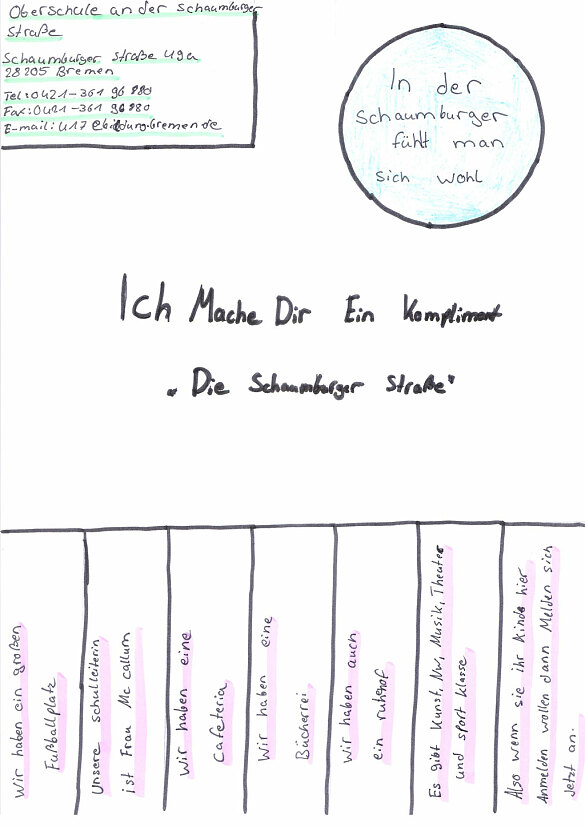 Oberschule an der Schaumburger
Straße
Schaumburger Straße 49a
28205 Bremen
Tel: 0421-361 96 880
Fax: 0421-361 96880
E-mail: 417@bildung.bremen.de
In der
Schaumburger
fühlt man
sich wohl
Ich Mache Dir Ein Kompliment
„Die Schaumburger Straße"
Wir haben ein großen
Fußballplatz
Unsere schulleiterin
ist Frau Mc callum
Wir haben eine
Cafeteria
Wir haben eine
Bücherrei
Wir haben auch
ein ruhehof
Es gibt Kunst, Nw, Musik, Theater
und sport klasse
Also wenn sie ihr Kinds hier
Anmelden wollen dann Melden sich
Jetzt an.